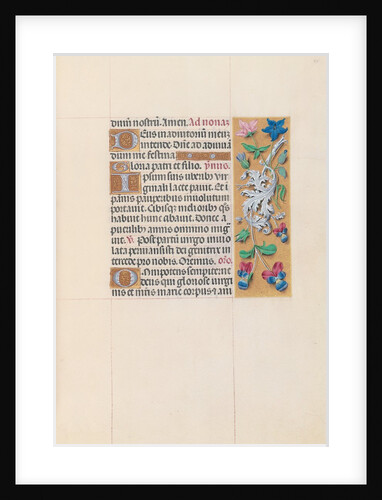 dm̄ nostrū. Amen. Ad nonaz
Deus in adiutoriū meū
intende. Dn̄e ad adiuvā
dum me festina
Gloria patri et filio. ymnus.
Ipsum suis uberibus vir
ginali lacte pavit. Et i
pannis pauperibus involutum
portavit. Cibisqz melioribus qs
habuit hunc cibavit. Donec a
puerilibus annis omnino migra
vit. V. Post partū virgo invio
lata permansisti dei genitrix in
tercede pro nobis. Oremus. orō.
Omnipotens sempiterne
deus qui gloriose virgi
nis et matris marie corpus et ani